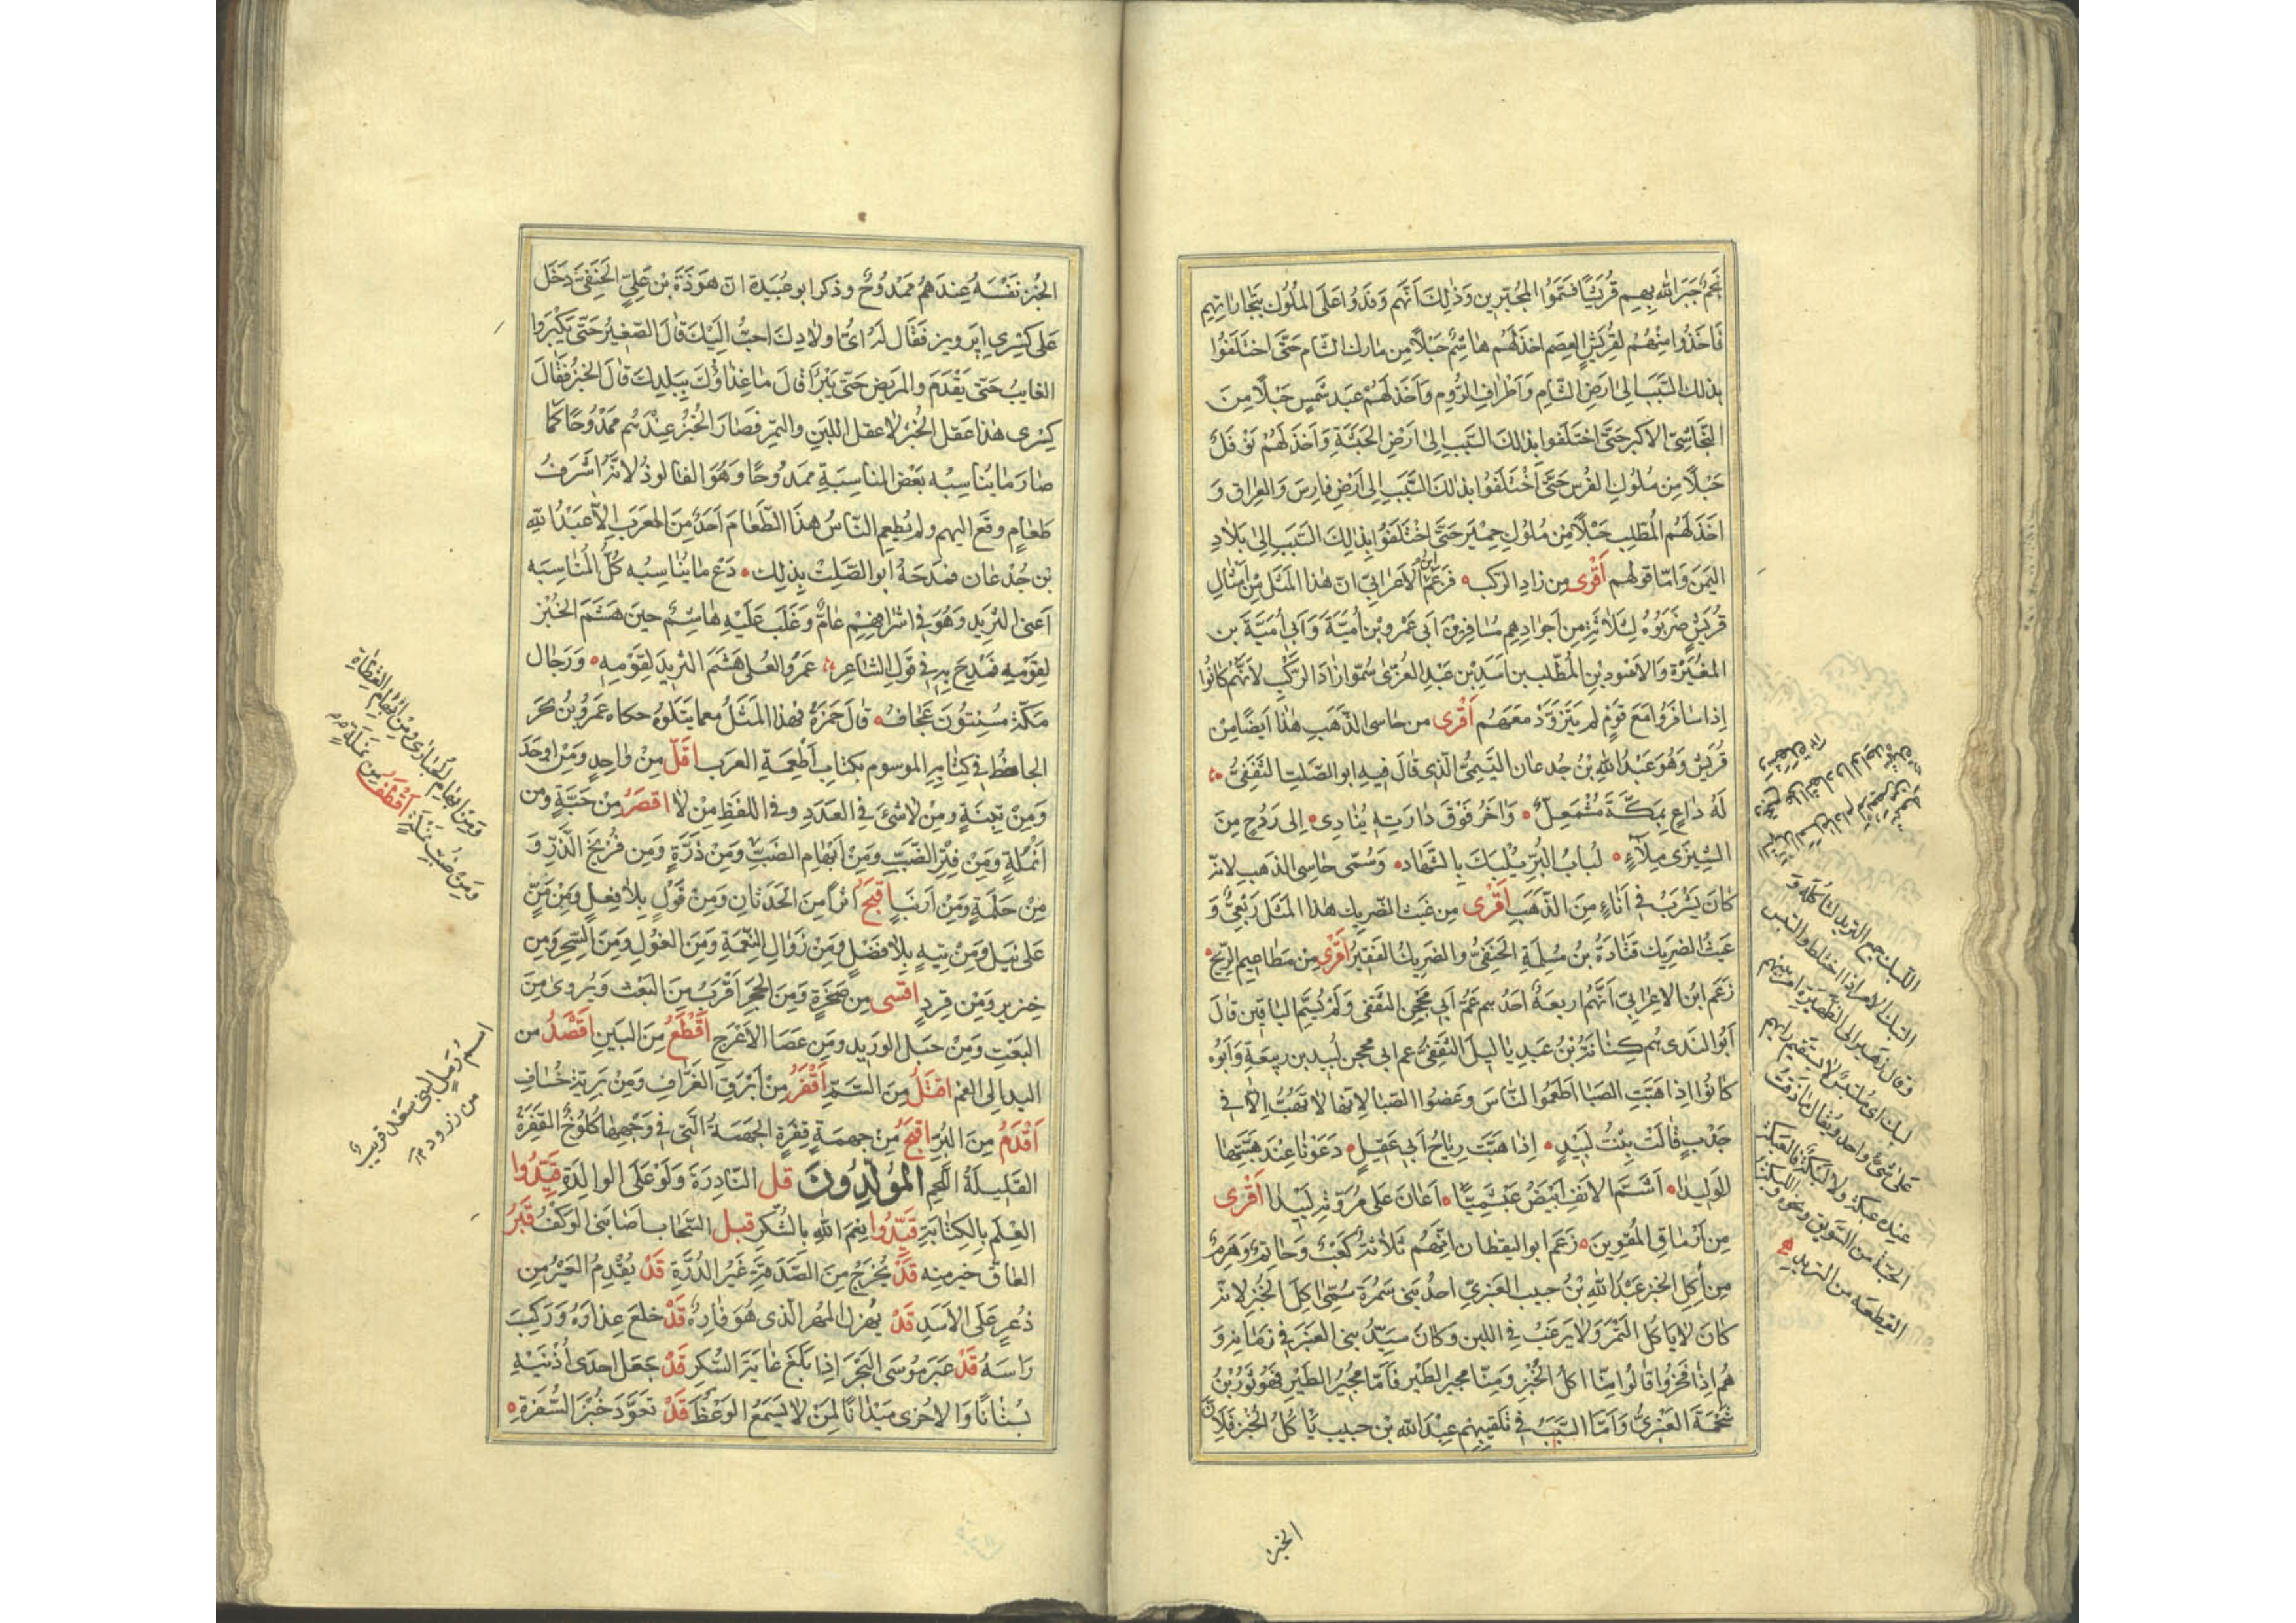 غَمٌ جَبَرَ اللّٰه بِهِم قُرَيْشًا فَسُمّوُا المُجَبّرِين وَذٰلِكَ اَنَّهُم وَفَدُوا عَلَى المُلُوك بِتِجَارَاتِهِم
فَاَخَذُوا مِنْهُم لِقُرَيْشٍ العِصَم اخَذَ لَهُم هَاشِمٌ حَبْلًا مِن مُلوك الشام حَتَّى اختَلَفُوا
بِذلك السَّبَب اِلىٰ ارَضِ الشَّام وَاَطْرافِ الرُّوم وَاَخَذَ لَهُمْ عَبد شَمسٍ حَبْلًا مِنَ
النَّجَاشِىّ الاَكبر حَتَّى اختَلَفوا بِذلكَ السَّبَب اِلىٰ ارَضِ الحَبَشَةِ وَاَخَذَ لَهُمْ نَوْفَلٌ
حَبْلًا مِن مُلُوكِ الفُرس حَتَّى اَخْتَلَفُوا بذلكَ السَّبَبِ اِلى اَرْضِ فارِسَ وَالعِراق وَ
اخَذَ لَهُم المُطّلِب حَبْلًا مِن مُلوُكِ حِمْيَر حَتَّى اخْتَلَفوُا بِذلِكَ السَّبَبِ اِلىٰ بَلاَدِ
اليَمَنَ وَامّا قَولهم اَقْرى مِن زادِ الرَّكب فَزَعَمَ ابْنُ الاَعرَابىّ انّ هٰذا المَثَل مِن اَمْثَالِ
قُرَيْشٍ ضَرَبُوهُ لِثَلاٰثَةٍ مِن اَجوادِهِم مُسَافِر بْن اَبى عَمرو بْن اُمَيَّةَ وَاَبى اُمَيَّةَ بن
المغُيَرْةِ وَالاَسْود بْنِ المُطّلب بن اَسَدِ بْن عَبْدِ العُزّىٰ سُمّوا زادَ الرَّكْبِ لاَنَّهُم كانُوا
اِذا سَافَرُوا مَعَ قَومٍ لم يَتَزَوَّدْ مَعَهُم اَقْرى من حاسى الذَّهَبِ هٰذا اَيضًا مِن
قُرَيشٍ وَهُوَ عَبْدُ اللّٰهِ بْنُ جُدعان التَّيمِىُّ الَّذِى قالَ فيهِ ابو الصَّلتِ الثَّقَفِىُّ
لَهُ داعٍ بِمَكَّةَ مُشْمَعِلٌّ وَاٰخَرُ فَوْقَ دارَتِهٖ يُنَادِى اِلى رُدُحٍ مِنَ
الشِّيزَى مِلاَءٍ لُبابُ البُرِّ يُلْبَكُ بِالشِّهادِ وَسُمّى حاسِى الذهَب لانّه
كَانَ يَشْرَبُ فى اَنَاءٍ مِنَ الذَّهَبِ اَقْرى مِن غَيث الضّرِيك هٰذا المَثَل رَبَعِىٌّ وَ
غَيثُ الضَرِيك قَتَادَةُ بْنُ مُسْلِمَةِ الحَنَفِىُّ والضَريكُ الفَقِيرُ اَقْرى مِنْ مَطاعِيم الرِّيح
زَعَم ابنُ الاعرابىّ اَنَّهُم اربعَةٌ احَدُهم عَمُّ اَبى مِحْجَن الثقفى وَلَمْ يُسَمِّ الباقين قالَ
اَبُو النَدى هُم كِنانَةُ بْنُ عَبدِ يا ليلَ الثّقَفِىُّ عَم ابى محجن لَبيد بن رَبيعَةَ وَاَبُوهُ
كانُوا اذا هَبَّتِ الصَبا اَطعَمُوا النَّاسَ وَخَصُّوا الصَبَا لِانّها لا تَهُبُّ اِلاّ فى
جَدْبٍ قَالَتْ بِنْتُ لَبِيْدٍ اِذا هَبَّت رِياحُ اَبى عَقيلٍ دَعَوْنا عِنْدَ هَبَّتِهَا
الوَلِيدا اَشَمَّ الانفِ اَبيَضَ عَبْشَمِيًّا اَعانَ عَلى مُرُوَّتِهِ لَبيْدا اَقْرى
مِن اَرْمَاقِ المُقْوِينَ زَعَم ابو اليقظان انَّهُم ثَلاٰثَةٌ كَعبٌ وَحَاتِمٌ وَهَرِمٌ
مِن اٰكِلِ الخبز عَبْدُ اللّٰهِ بْنُ حبيب العَنبَرىّ احدُ بَنى سَمُرَة سُمّىَ اٰكِلَ الخُبزِ لانّه
كانَ لا يَاكُلُ التَّمْرَ وَلا يَرغَبُ فِى اللبن وَكانَ سَيِّدُ بنى العَنْبَر فى زمَانِهٖ وَ
هُم اِذا فَخَرُوا قالُوا مِنّا اٰكل الخُبْزِ وَمِنّا مجير الطَّير فَاَمّا مُجِيرُ الطَيرِ فَهُو ثَوْرُ بْنُ
شَحْمَةَ العَنبَرىُّ وَاَمّا السَّبَبُ فى تَلقِيبِهِم عبدَ اللّٰه بْن حبيب بآكِلُ الخُبْز فَلِاَنَّ
الخبز
اللّبك جمع الثريد لتاكله وَ
التبك الامر اذا اختلط والتبس
وَقال زهير الى الظَّهيَرَةِ امر بينهم
لبك اى ملتبسٌ لا يستقيم رايهم
عَلىٰ شئ واحد ويُقال ما ذقت
عنده عبكة ولا لبكة فالعَبكة
الحبّة من السّويق ونحوه واللبكة
القطعة من الثريد
الخُبْز نفْسَهُ عِندَهُمْ مَمْدُوحٌ وذكر ابو عُبَيدة انّ هَوْذَةَ بْن عَلِىٍّ الحَنَفِىّ دَخَلَ
عَلى كِسْرى اپرويز فقَال لَهُ اىُّ اولادِكَ احَبُّ اِلَيْكَ قالَ الصّغِيرُ حَتّى يَكْبُروا
الغايبُ حَتّى يَقْدَمَ والمَريَض حَتّى يَبْرَأ قالَ مَا غِذاؤُكَ بِبَلَدِكَ قالَ الخُبزُ فقَالَ
كِسْرى هٰذا عَقل الخُبْز لا عقل اللبَنِ والتمرِ فَصَارَ الخُبْزُ عِنْدَهُم مَمْدُوحًا كَما
صارَ مَا يُناسِبُه بَعْضَ المناسِبَةِ ممَدُوحًا وَهُوَ الفالوذُ لانّهُ اَشرَفُ
طَعامٍ وقَع اليهم ولم يُطعِم النّاسَ هذَا الطَّعَامَ اَحَدٌ مِنَ العَرَبِ اِلّا عَبْدُ اللّٰهِ
بْنِ جُدْعَان فمَدَحَهُ ابو الصَّلتْ بِذلِك دَعْ مَا يُنَاسِبُه كُلَّ المُنَاسِبَه
اَعنى الثريد وَهُوَ فى اَشْرافِهِم عامٌّ وَغَلَب عَلَيْهِ هاشِمٌ حينَ هَشَمَ الخُبْز
لِقَومِه فَمُدِحَ بِهِ فى قَولِ الشاعِر عَمرُو العُلى هَشَمَ الثريدَ لِقَوْمِه وَرِجَال
مَكّة مُسْنِتُونَ عِجَاف قالَ حَمزَةُ فهذا المَثَلُ معما يَتلُوهُ حكاه عَمْرُو بْنُ بَحَر
الجاحظُ فى كِتابِهِ الموسوم بكتابِ اَطْعِمَةِ العرَب اَقَلّ مِنْ واحِدٍ وَمَنْ اوحَدَ
وَمَنْ تِبْنَةٍ ومِنْ لا شَىْءَ فى العَدَدِ وفى اللفظِ مِنْ لا اقصَرُ مِنْ حَبَّةٍ ومن
اَنمُلةٍ وَمِن فِتْرِ الضَّبِّ وَمِنْ اَبهَام الضبِّ وَمِنْ ذَرَّةٍ وَمِن فُرُنج الذّرِّ وَ
مِنْ حَلَمَةٍ وَمِن اَرنبٍ اَقبَحُ اثَرًا مِنَ الحَدَثانِ وَمِنْ قَوْلٍ بِلاَ فِعلٍ وَمِنْ مَنٍّ
عَلى نَيلٍ وَمِنْ تيهٍ بِلاَ فَضلٍ وَمِنْ زَوالِ النِّعْمَةِ وَمِنَ الغُولِ وَمِنَ السِّحرِ ومِن
خِنزير وَمِنْ قِردٍ اقسى مِن صَخرَةٍ وَمِنَ الحَجَر اَقْرَب مِنَ البَعْث وَيُروىٰ مِنَ
البَغتِ وَمِنْ حَبَل الوَريد وَمِن عَصَا الاَعْرَج اَقْطَعُ مِنَ البَينِ اَقْصَدُ مِن
اليد اِلى الفم اقتَلُ مِنَ السَّمّ اَقْفَرُ مِنْ اَبْرَق العَزَّافِ وَمِنْ بَرِيَّة خُسَافِ
اَقْدَمُ مِنَ البُرِّ اقبَحُ مِنْ جهمَةٍ قفِرَةٍ الجَهمَةُ الَّتى فى وَجْهِهَا كُلُوحٌ القَفِرَةُ
القَلِيلَةُ اللَّحمِ المُولَّدُونَ قل النّادِرَةَ وَلَوْ عَلَى الوالِدَةِ قيّدُوا
العِلْمَ بِالكِتابَةِ قَيّدُوا نِعَمَ اللّٰهِ بِالشُّكرِ قبل السَّحَاب اَصَابَنى الوَكْفُ قَبْرُ
العَاقّ خير منِه قَدْ يُخرَجُ مِنَ الصَّدفَةِ غَيْرُ الدُّرَّةِ قَدْ يُقْدِمُ العَيْرُ مِن
ذُعرٍ عَلى الاسَدِ قَدْ يُهزل المُهر الّذى هُوَ فارِه قَدْ خلعَ عِذارَهُ وَرَكِبَ
رَاسَهُ قَدْ عَبَرَ مُوسَى البَحرَ اِذا بَلَغَ غايَةَ السُّكرِ قَدْ جَعَل احدَى اُذْنَيْهِ
بُستَانًا وَالاخُرى مَيْدَانًا لِمَنْ لا يَسمَعُ الوَعظَ قَدْ تعَوَّدَ خُبْزَ السُّفرَةِ
وَمِن ابهام الحُبارى وَمِنْ ابهام القطاة
وَمِن ضبّ نملة اَقْطَفُ مِن نملةٍ
اسم رَملٍ لبنى سعْد قريب
من زرود